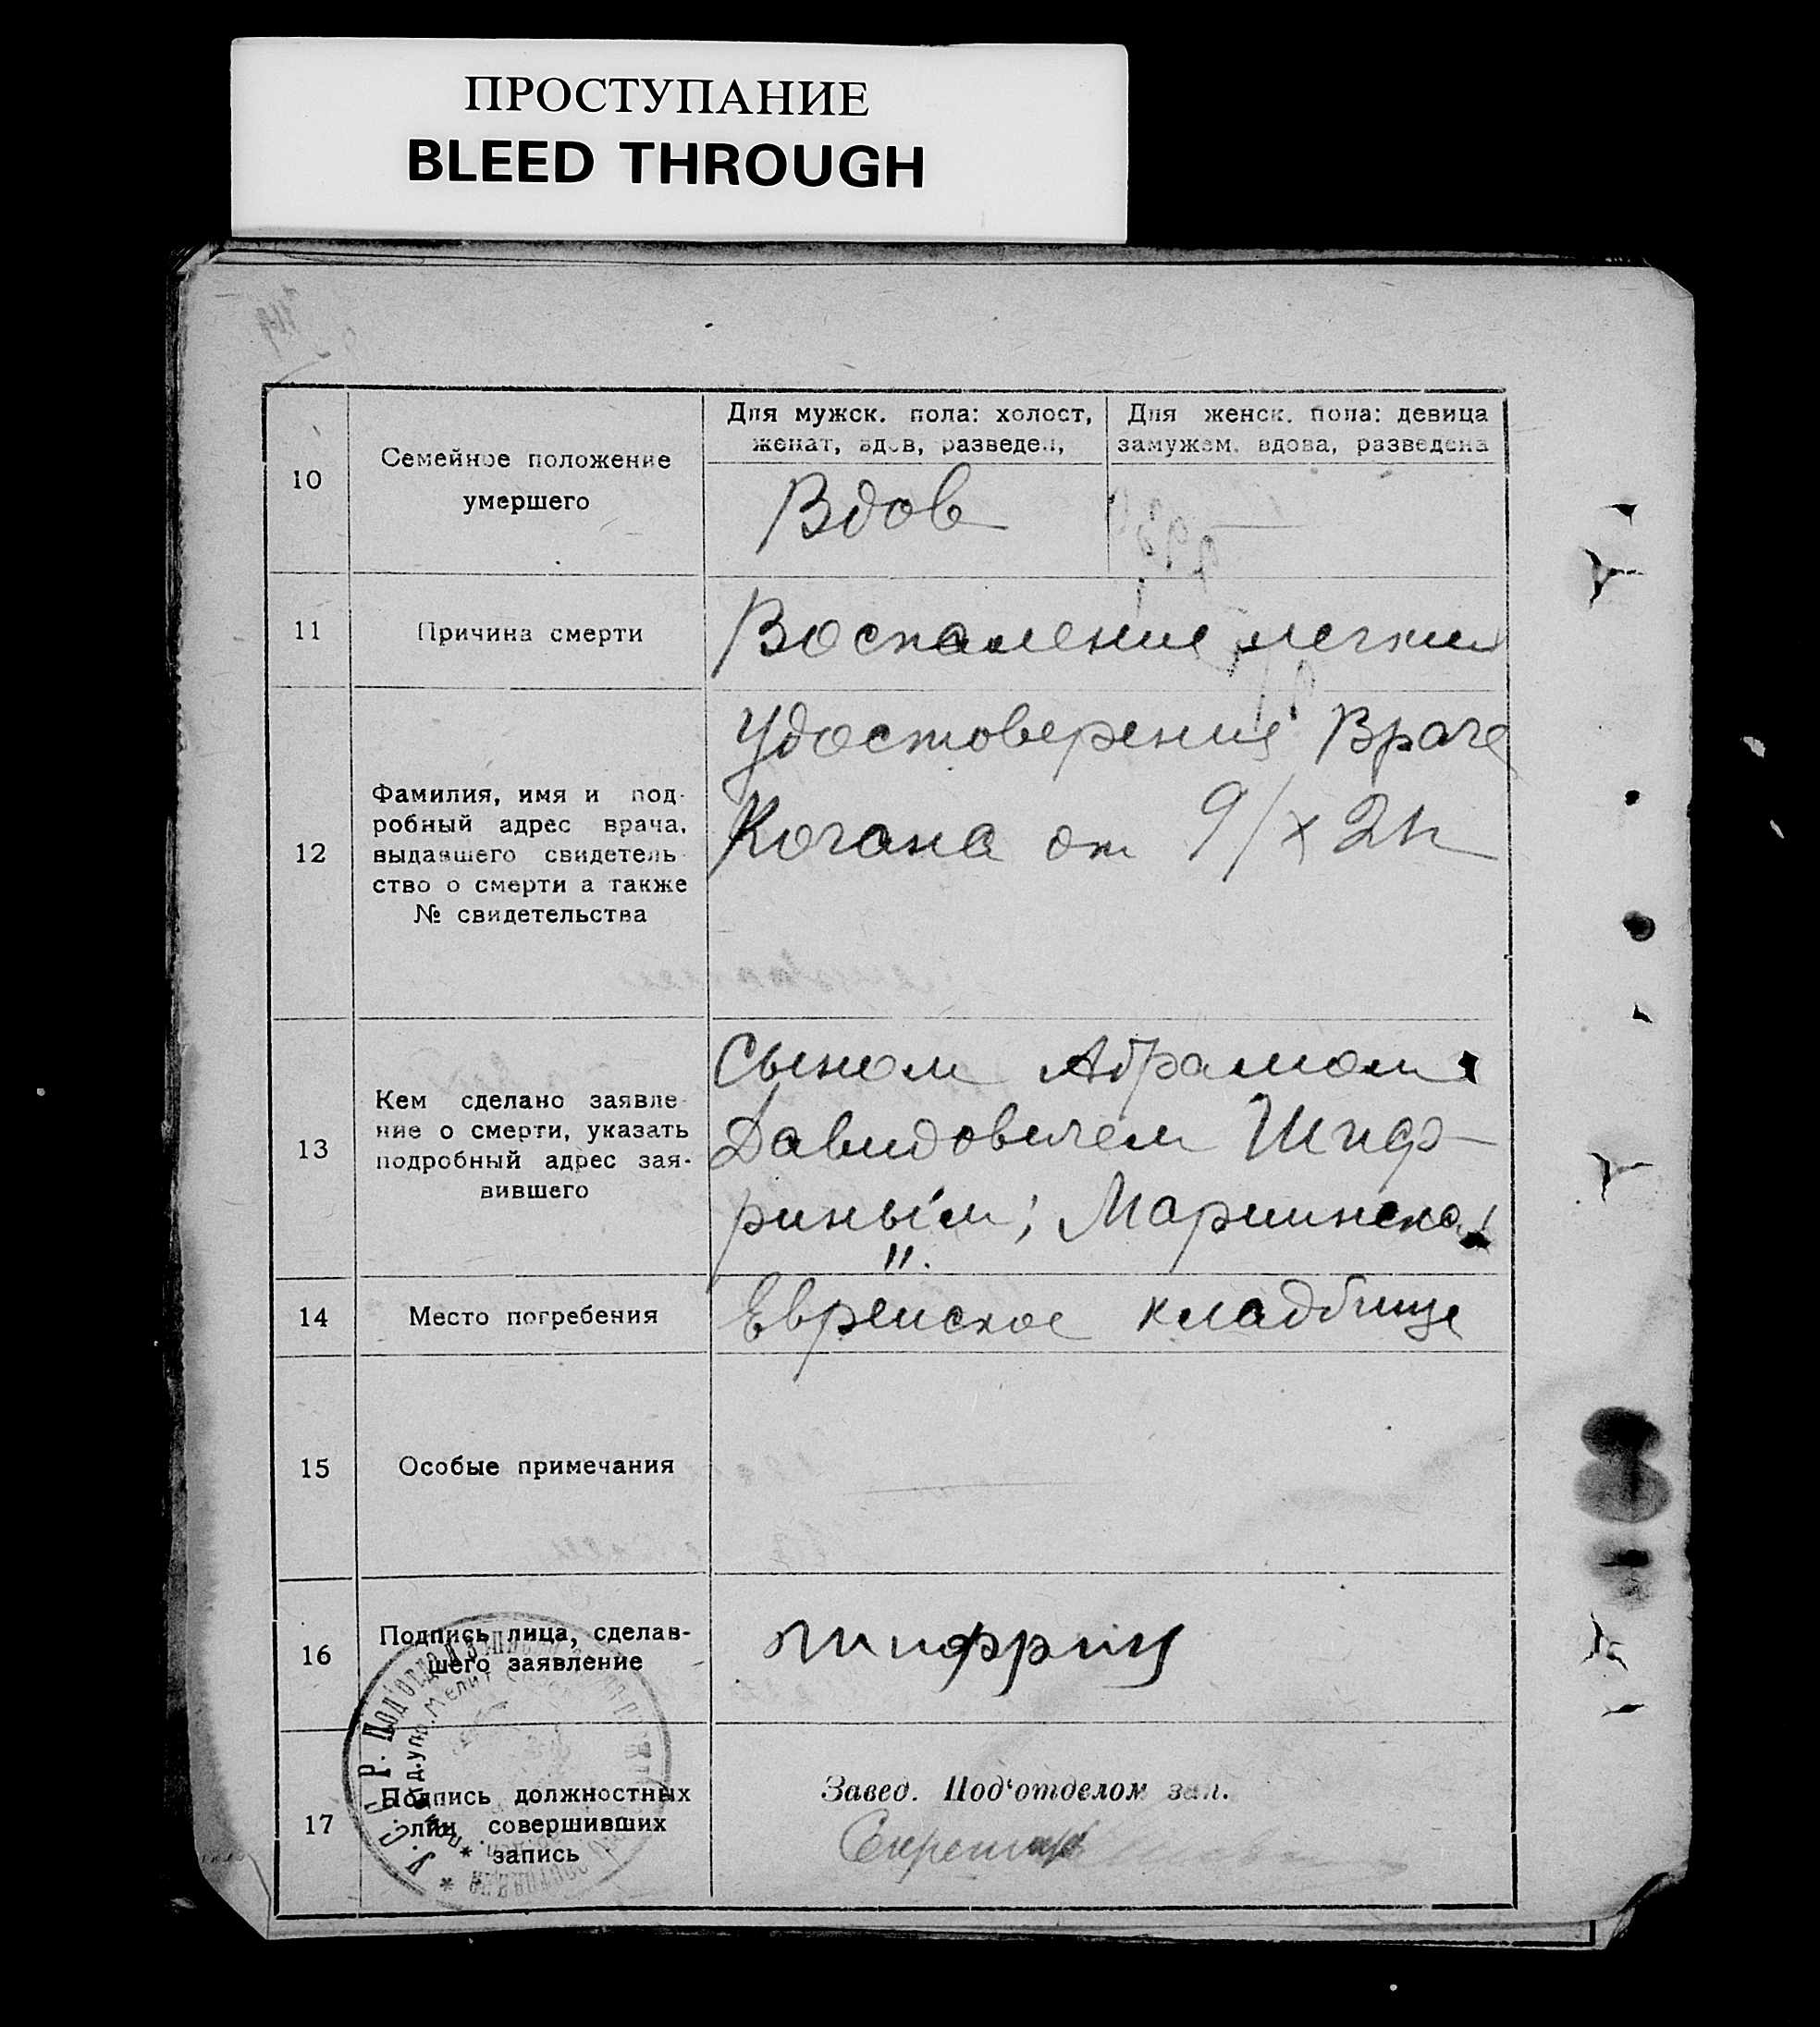 ПРОСТУПАНИЕ
BLEED THROUGH
10
Семейное положение
умершего
Для мужск. пола: холост,
женат, вдов, разведен,
Для женск. пола: девица
замужем, вдова, разведена
Вдов
11
Причина смерти
Воспаление легких
12
Фамилия, имя и под-
робный адрес врача,
выдавшего свидетель-
ство о смерти а также
№ свидетельства
Удостоверение Врача
Когана от 9/X
13
Кем сделано заявле-
ние о смерти, указать
подробный адрес зая-
вившего
Сыном Абрамом
Давидовичем Шиф-
риным; Мариинская
11.
14
Место погребения
Еврейское кладбище
15
Особые примечания
16
Подпись лица, сделав-
шего заявление
Шифрин
17
Подпись должностных
лиц совершивших
запись
Завед. Под'отделом зап.
Секретарь
У. С. С. Р. Под'отдел